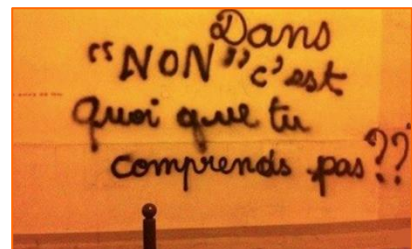 Dans
"NON" c'est
quoi que tu
comprends pas ??